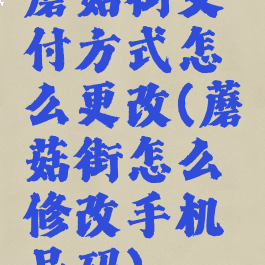 蘑菇街支
付方式怎
么更改(蘑
菇街怎么
修改手机
号码)